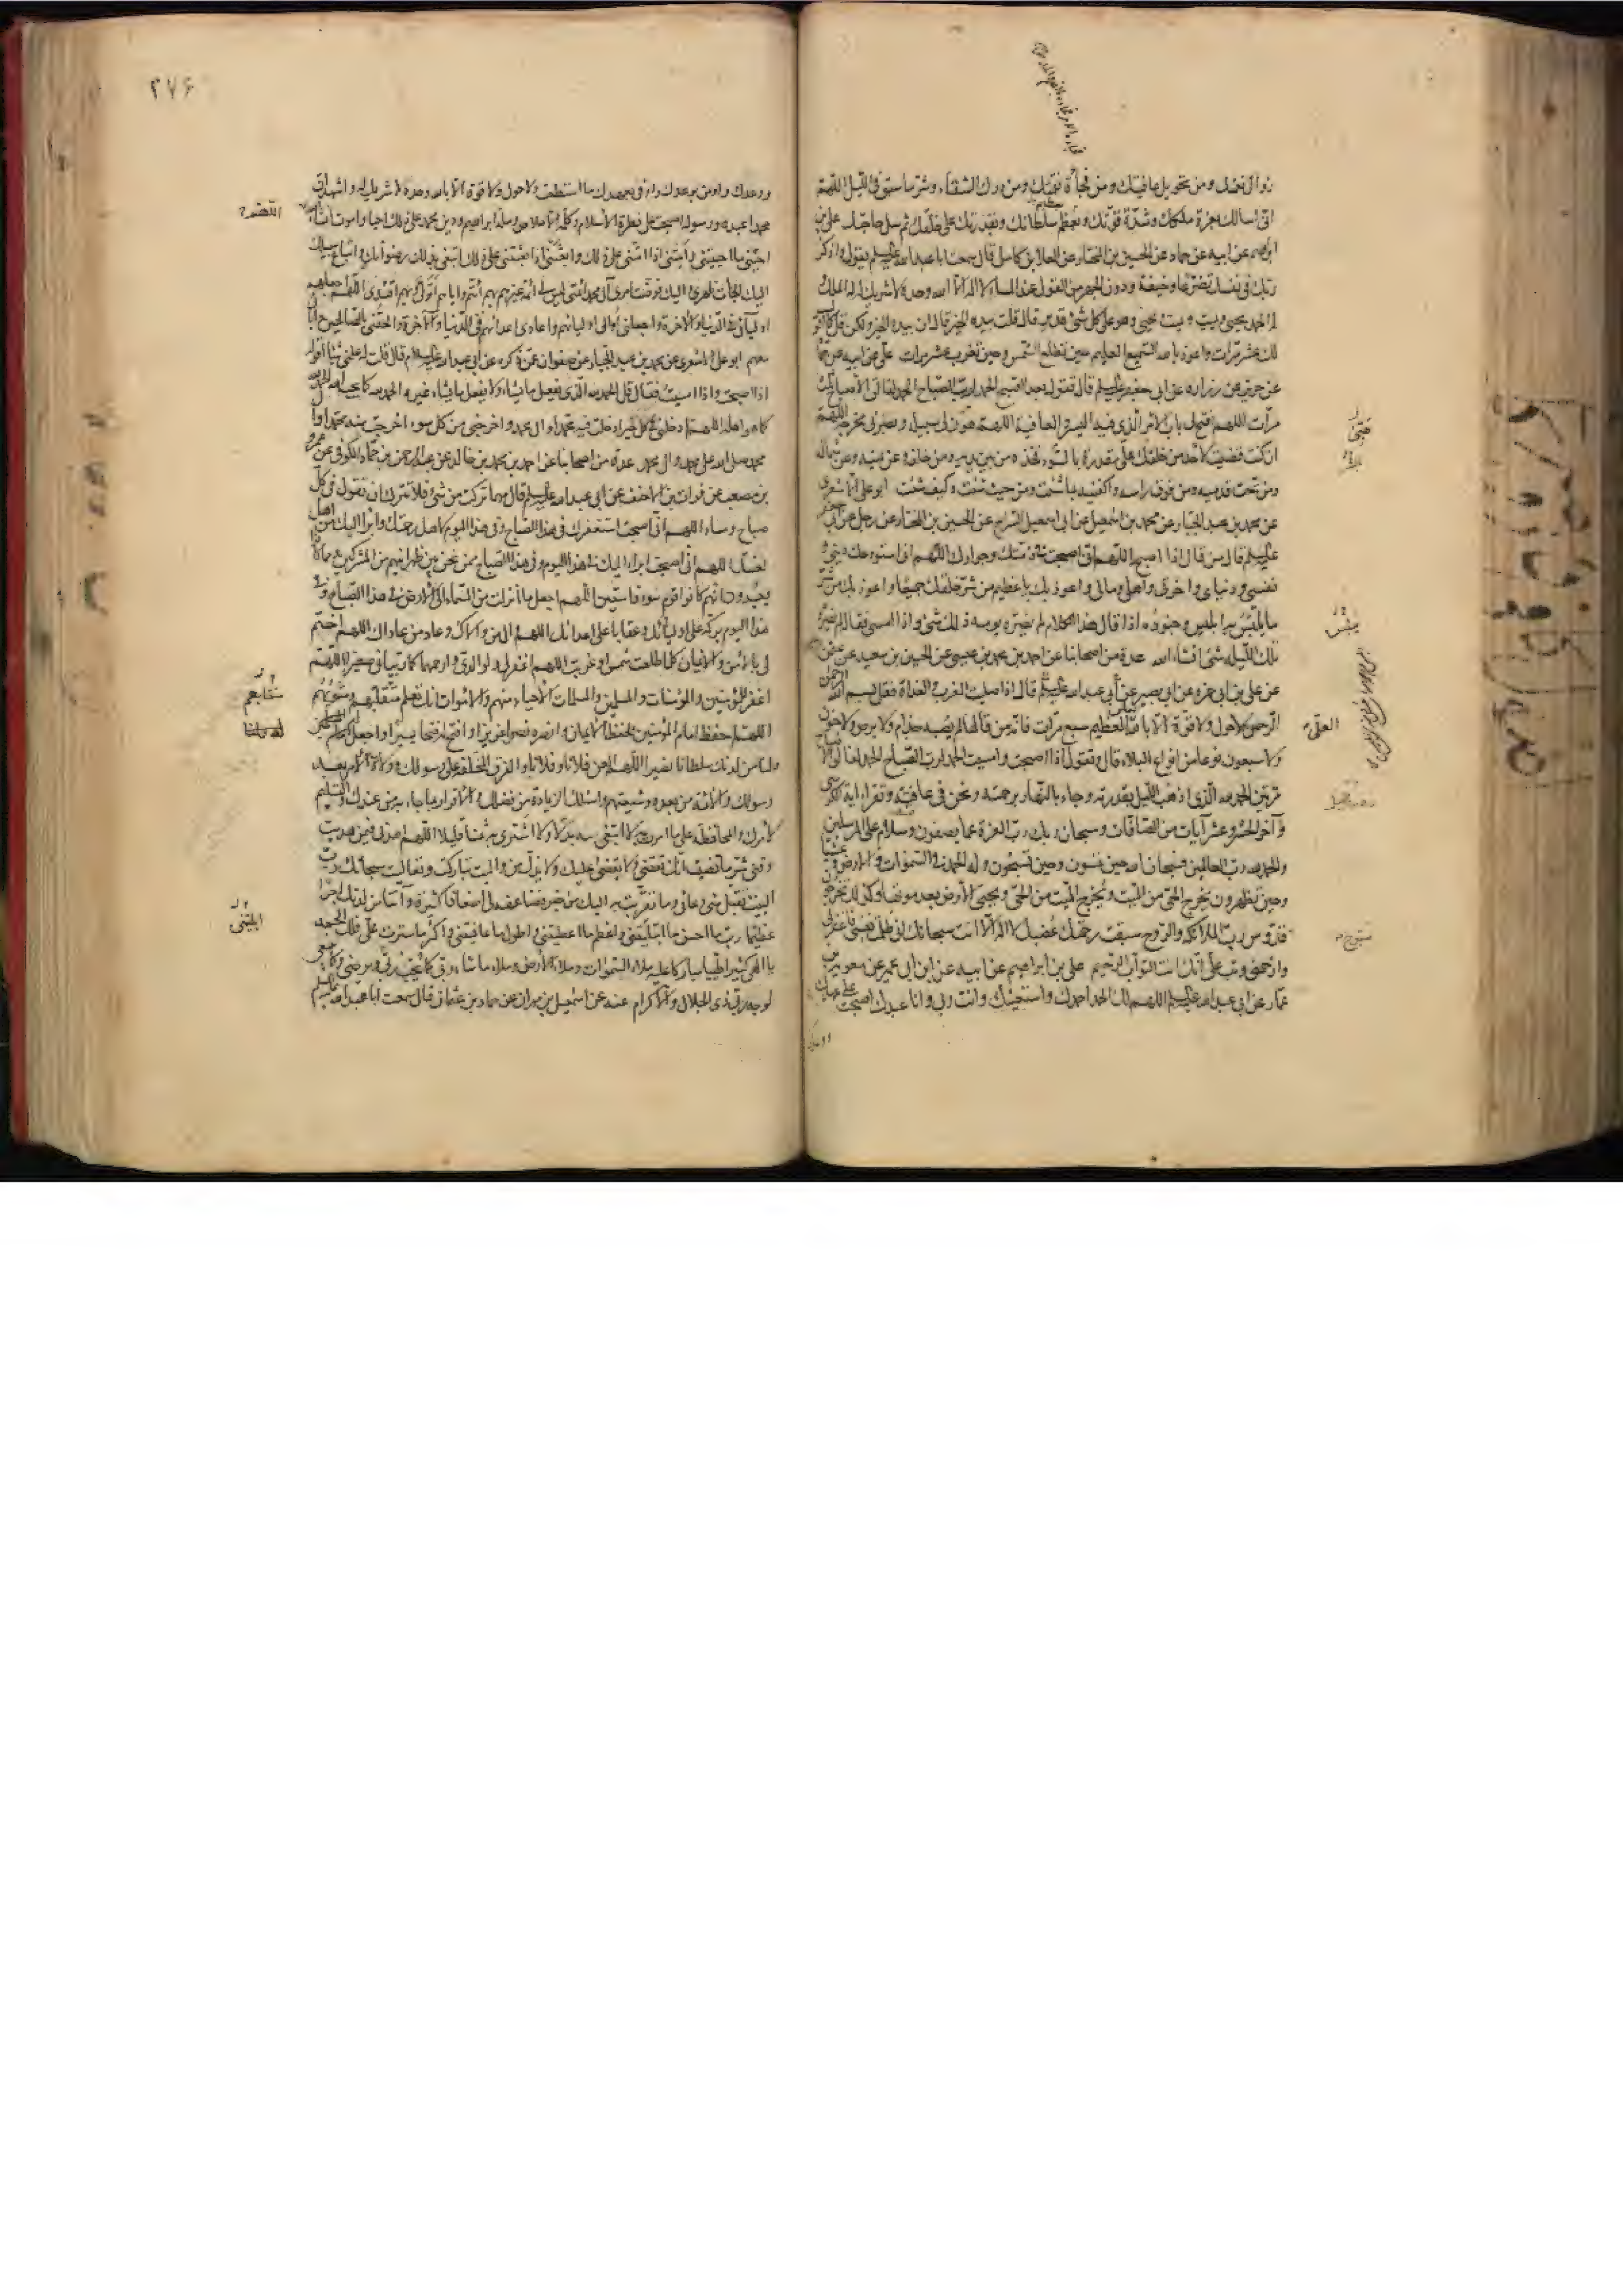 زوال نعمتك ومن تحويل عافيتك ومن فجأة نقمتك ومن درك الشقاء وشر ما سبق فى الليل اللهم
انى اسالك بعزة ملكك وشدة قوتك وبعظيم سلطانك وبقدرتك على خلقك ثم سل حاجتك على بن
ابرهيم عن ابيه عن حماد عن الحسين بن المختار عن العلا بن كامل قال سمعت ابا عبد الله عليه السلم يقول واذكر
ربك فى نفسك تضرعا وخيفة ودون الجهر من القول عند المساء لا اله الا الله وحده لا شريك له له الملك
وله الحمد يحيى ويميت ويميت ويحيى وهو على كل شئ قدير قال قلت بيده الخير قال ان بيده الخير ولكن قل كما اقول
لك عشر مرات واعوذ بالله السميع العليم حين تطلع الشمس وحين تغرب عشر مرات على عن ابيه عن حماد
عن حريز عن زراره عن ابى جعفر عليه السلم قال تقول بعد الصبح الحمد لرب الصباح الحمد لفالق الاصباح ثلث
مرات اللهم افتح لى باب الامر الذى فيه اليسر والعافية اللهم هون لى سبيله وبصرنى مخرجه اللهم
ان كنت قضيت لاحد من خلقك على مقدرة بالسوء فخذه من بين يديه ومن خلفه وعن يمينه وعن شماله
ومن تحت قدميه ومن فوق راسه واكفنيه بما شئت ومن حيث شئت وكيف شئت ابو على الاشعرى
عن محمد بن عبد الجبار عن محمد بن اسمعيل عن ابى اسمعيل السراج عن الحسين بن المختار عن رجل عن ابى جعفر
عليه السلم قال من قال اذا اصبح اللهم انى اصبحت فى ذمتك وجوارك اللهم انى استودعك دينى و
نفسى ودنياى واخرتى واهلى ومالى واعوذ بك يا عظيم من شر خلقك جميعا واعوذ بك من شر
ما يلبس به ابليس وجنوده اذا قال هذا الكلام لم يضره يومه ذلك شئ واذا امسى فقاله لم يضره
تلك الليله شئ انشاء الله عدة من اصحابنا عن احمد بن محمد بن عيسى عن الحسين بن سعيد عن عثمن
عن على بن ابى حمزه عن ابى بصير عن ابى عبد الله عليه السلم قال اذا صليت المغرب والغداة فقل بسم الله الرحمن
الرحيم لا حول ولا قوة الا بالله العظيم سبع مرات فانه من قالها لم يصبه جذام ولا برص ولا جنون
ولا سبعون نوعا من انواع البلاء قال وتقول اذا اصبحت وامسيت الحمد لرب الصباح الحمد لفالق الاصباح
مرتين الحمد لله الذى اذهب الليل بقدرته وجاء بالنهار برحمته ونحن فى عافية وتقراء اية الكرسى
وآخر الحشر وعشر آيات من الصافات وسبحان ربك رب العزة عما يصفون وسلام على المرسلين
والحمد لله رب العالمين فسبحان الله حين تمسون وحين تصبحون وله الحمد فى السموات والارض وعشيا
وحين تظهرون يخرج الحى من الميت ويخرج الميت من الحى ويحيى الارض بعد موتها وكذلك تخرجون
قدوس رب الملائكه والروح سبقت رحمتك غضبك لا اله الا انت سبحانك انى ظلمت نفسى فاغفر لى
وارحمنى وتب على انك انت التواب الرحيم على بن ابراهيم عن ابيه عن ابن ابى عمير عن معوية بن
عمار عن ابى عبد الله عليه السلم اللهم لك الحمد احمدك واستعينك وانت ربى وانا عبدك اصبحت على عهدك
العلى
سبوح
٢٧۶
ووعدك واومن بوعدك واوفى بعهدك ما استطعت ولا حول ولا قوة الا بالله وحده لا شريك له واشهد ان
محمدا عبده ورسوله اصبحت على فطرة الاسلام وكلمة الاخلاص وملة ابراهيم ودين محمد على ذلك احيا واموت انشاء الله
احينى ما احييتنى وامتنى اذا امتنى على ذلك وابعثنى اذا بعثتنى على ذلك ابتغى بذلك رضوانك واتباع سبيلك
اليك الجات ظهرى واليك فوضت امرى آل محمد ائمتى ليس لى ائمة غيرهم بهم ائتم واياهم اتولى وبهم اقتدى اللهم اجعلهم
اوليائى فى الدنيا والاخرة واجعلنى اوالى اوليائهم واعادى اعدائهم فى الدنيا والآخرة والحقنى بالصالحين وابائى
معهم ابو على الاشعرى عن محمد بن عبد الجبار عن صفوان عمن ذكره عن ابى عبد الله عليه السلام قال قلت له علمنى شيئا اقوله
اذا اصبحت واذا امسيت فقال قل الحمد لله الذى يفعل ما يشاء ولا يفعل ما يشاء غيره الحمد لله كما يحب الله الحمد لله
كما هو اهله اللهم ادخلنى فى كل خير ادخلت فيه محمدا وال محمد واخرجنى من كل سوء اخرجت منه محمدا وال
محمد صلى الله على محمد وال محمد عدة من اصحابنا عن احمد بن محمد بن خالد عن عبد الرحمن بن حماد الكوفى عن عمرو
بن مصعب عن فرات بن الاحنف عن ابى عبد الله عليه السلم قال مهما تركت من شئ فلا تترك ان تقول فى كل
صباح ومساء اللهم انى اصبحت استغفرك فى هذا الصباح وفى هذا اليوم لاهل رحمتك وابرا اليك من اهل
لعنتك اللهم انى اصبحت ابراء اليك فى هذا اليوم وفى هذا الصباح ممن نحن بين ظهرانيهم من المشركين ومما كانوا
يعبدون انهم كانوا قوم سوء فاسقين اللهم اجعل ما انزلت من السماء الى الارض فى هذا الصباح وفى
هذا اليوم بركة على اوليائك وعقابا على اعدائك اللهم وال من والاك وعاد من عاداك اللهم اختم
لى بالامن والايمان كلما طلعت شمس او غربت اللهم اغفر لى ولوالدى وارحمهما كما ربيانى صغيرا اللهم
اغفر للمؤمنين والمؤمنات والمسلمين والمسلمات الاحياء منهم والاموات انك تعلم متقلبهم ومثويهم
اللهم احفظ امام المؤمنين بحفظ الايمان وانصره نصرا عزيزا وافتح له فتحا يسيرا واجعل له
ولنا من لدنك سلطانا نصيرا اللهم العن فلانا وفلانا والفرق المختلفة على رسولك وولاة الامر بعد
رسولك والائمة من بعده وشيعتهم واسئلك الزيادة من فضلك والاقرار بما جاء به من عندك والتسليم
لامرك والمحافظة على ما امرت به لا ابتغى به بدلا ولا اشترى به ثمنا قليلا اللهم اهدنى فيمن هديت
وقنى شر ما قضيت انك تقضى ولا يقضى عليك ولا يذل من واليت تباركت وتعاليت سبحانك رب
البيت تقبل منى دعائى وما تقربت به اليك من خير فضاعفه لى اضعافا كثيرة وآتنا من لدنك اجرا
عظيما رب ما احسن ما ابتليتنى واعظم ما اعطيتنى واطول ما عافيتنى واكثر ما سترت على فلك الحمد
يا الهى كثيرا طيبا مباركا عليه ملاء السموات وملاء الارض وملاء ما شاء ربى كما يحب ربى ويرضى وكما ينبغى
لوجه ربى ذى الجلال والاكرام عنه عن اسمعيل بن مهران عن حماد بن عثمان قال سمعت ابا عبد الله عليه السلم
اللهم